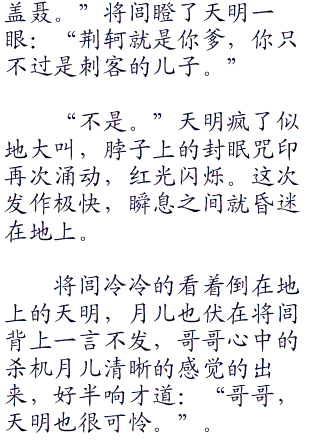 盖聂。”将闾瞪了天明一
眼：“荆轲就是你爹，你只
不过是刺客的儿子。”
“不是。”天明疯了似
地大叫，脖子上的封眠咒印
再次涌动，红光闪烁。这次
发作极快，瞬息之间就昏迷
在地上。
将闾冷冷的看着倒在地
上的天明，月儿也伏在将闾
背上一言不发，哥哥心中的
杀机月儿清晰的感觉的出
来，好半响才道：“哥哥，
天明也很可怜。”。